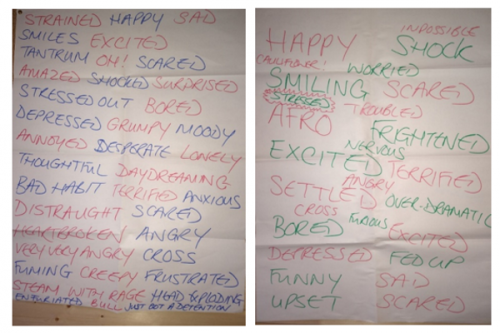 STRAINED HAPPY SAD
SMILES EXCITED
TANTRUM OH! SCARED
AMAZED SHOCKED SURPRISED
STRESSED OUT BORED
DEPRESSED GRUMPY MOODY
ANNOYED DESPERATE LONELY
THOUGHTFUL DAYDREAMING
BAD HABIT TERRIFIED ANXIOUS
DISTRAUGHT SCARED
HEARTBROKEN ANGRY
VERY VERY ANGRY CROSS
FUMING CREEPY FRUSTRATED
STEAM WITH RAGE HEAD EXPLODING
ENFURIATED BULL JUST GOT A DETENTION
IMPOSSIBLE
HAPPY SHOCK
WORRIED
SMILING SCARED
STRESSED TROUBLED
AFRO FRIGHTENED
NERVOUS
EXCITED TERRIFIED
ANGRY
SETTLED OVER-DRAMATIC
CROSS FURIOUS
BORED EXCITED
DEPRESSED FED UP
FUNNY SAD
UPSET SCARED